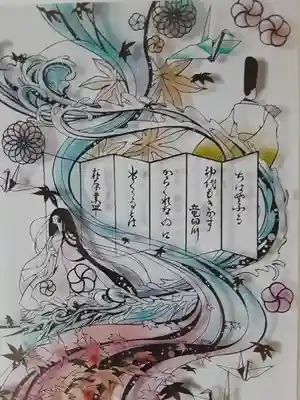 ちはやふる
神代もきかす
竜田川
からくれなゐに
水くくるとは
在原業平